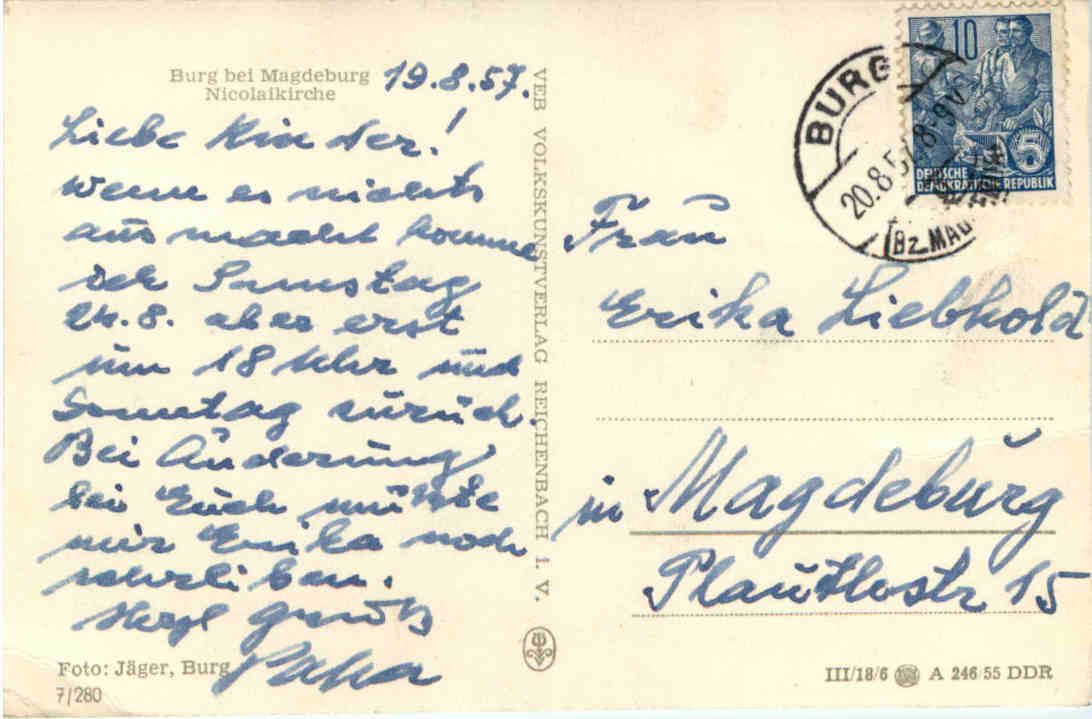 Burg bei Magdeburg
Nicolaikirche
19.8.57.
Liebe Kinder!
wenn es nichts
ausmacht komme
ich Samstag
24.8. aber erst
um 18 Uhr und
Sonntag zurück.
Bei Änderung
bei Euch müßte
mir Erika noch
schreiben.
Herzl Gruß
Papa
Foto: Jäger, Burg
7/280
VEB VOLKSKUNSTVERLAG REICHENBACH i. V.
BURG
20.8.57.8-9V
(Bz. MAGD
10
5
DEUTSCHE
DEMOKRATISCHE REPUBLIK
Frau
Erika Liebhold
in Magdeburg
15
III/18/6 A 246/55 DDR